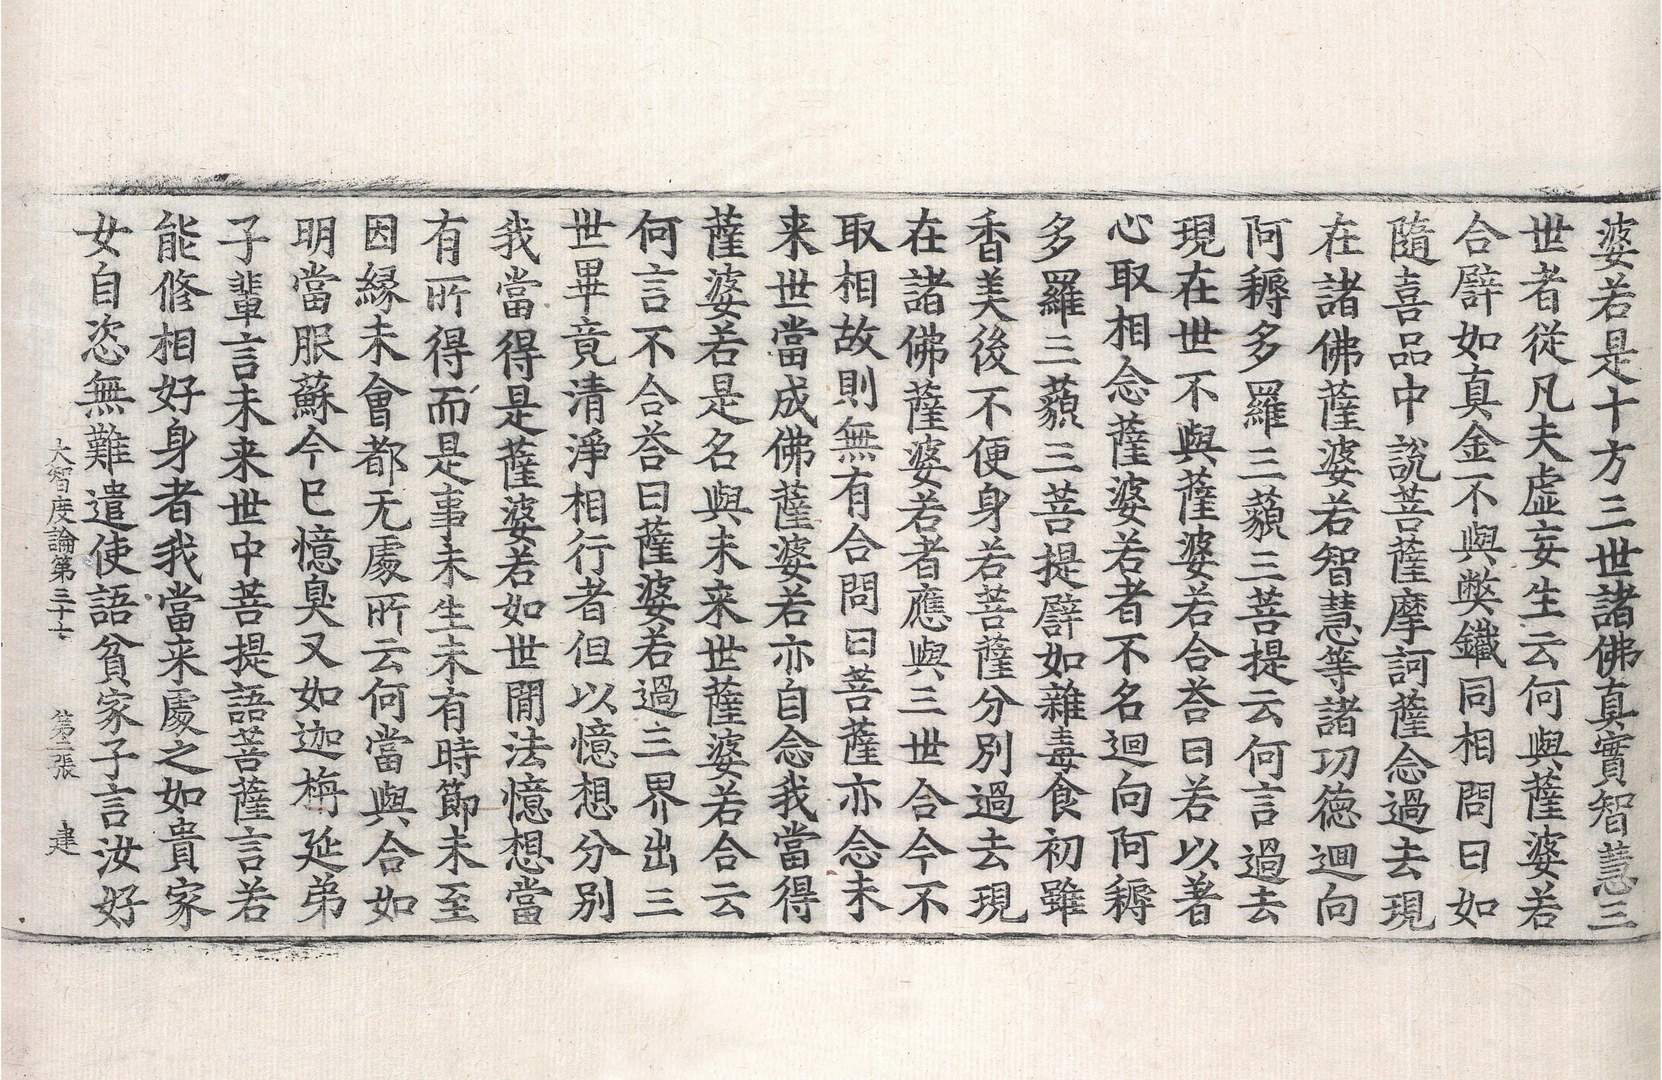 婆若是十方三世諸佛真實智慧三
世者從凡夫虛妄生云何與薩婆若
合譬如真金不與弊鐵同相問曰如
隨喜品中說菩薩摩訶薩念過去現
在諸佛薩婆若智慧等諸功徳迴向
阿耨多羅三藐三菩提云何言過去
現在世不與薩婆若合荅曰若以著
心取相念薩婆若者不名迴向阿耨
多羅三藐三菩提譬如雜毒食初雖
香美後不便身若菩薩分別過去現
在諸佛薩婆若者應與三世合今不
取相故則無有合問曰菩薩亦念未
来世當成佛薩婆若亦自念我當得
薩婆若是名與未来世薩婆若合云
何言不合荅曰薩婆若過三界出三
世畢竟清淨相行者但以憶想分別
我當得是薩婆若如世閒法憶想當
有所得而是事未生未有時節未至
因緣未會都无處所云何當與合如
明當服蘇今已憶臭又如迦栴延弟
子輩言未来世中菩提語菩薩言若
能修相好身者我當来處之如貴家
女自恣無難遣使語貧家子言汝好
大智度論第三十六 第二張 建